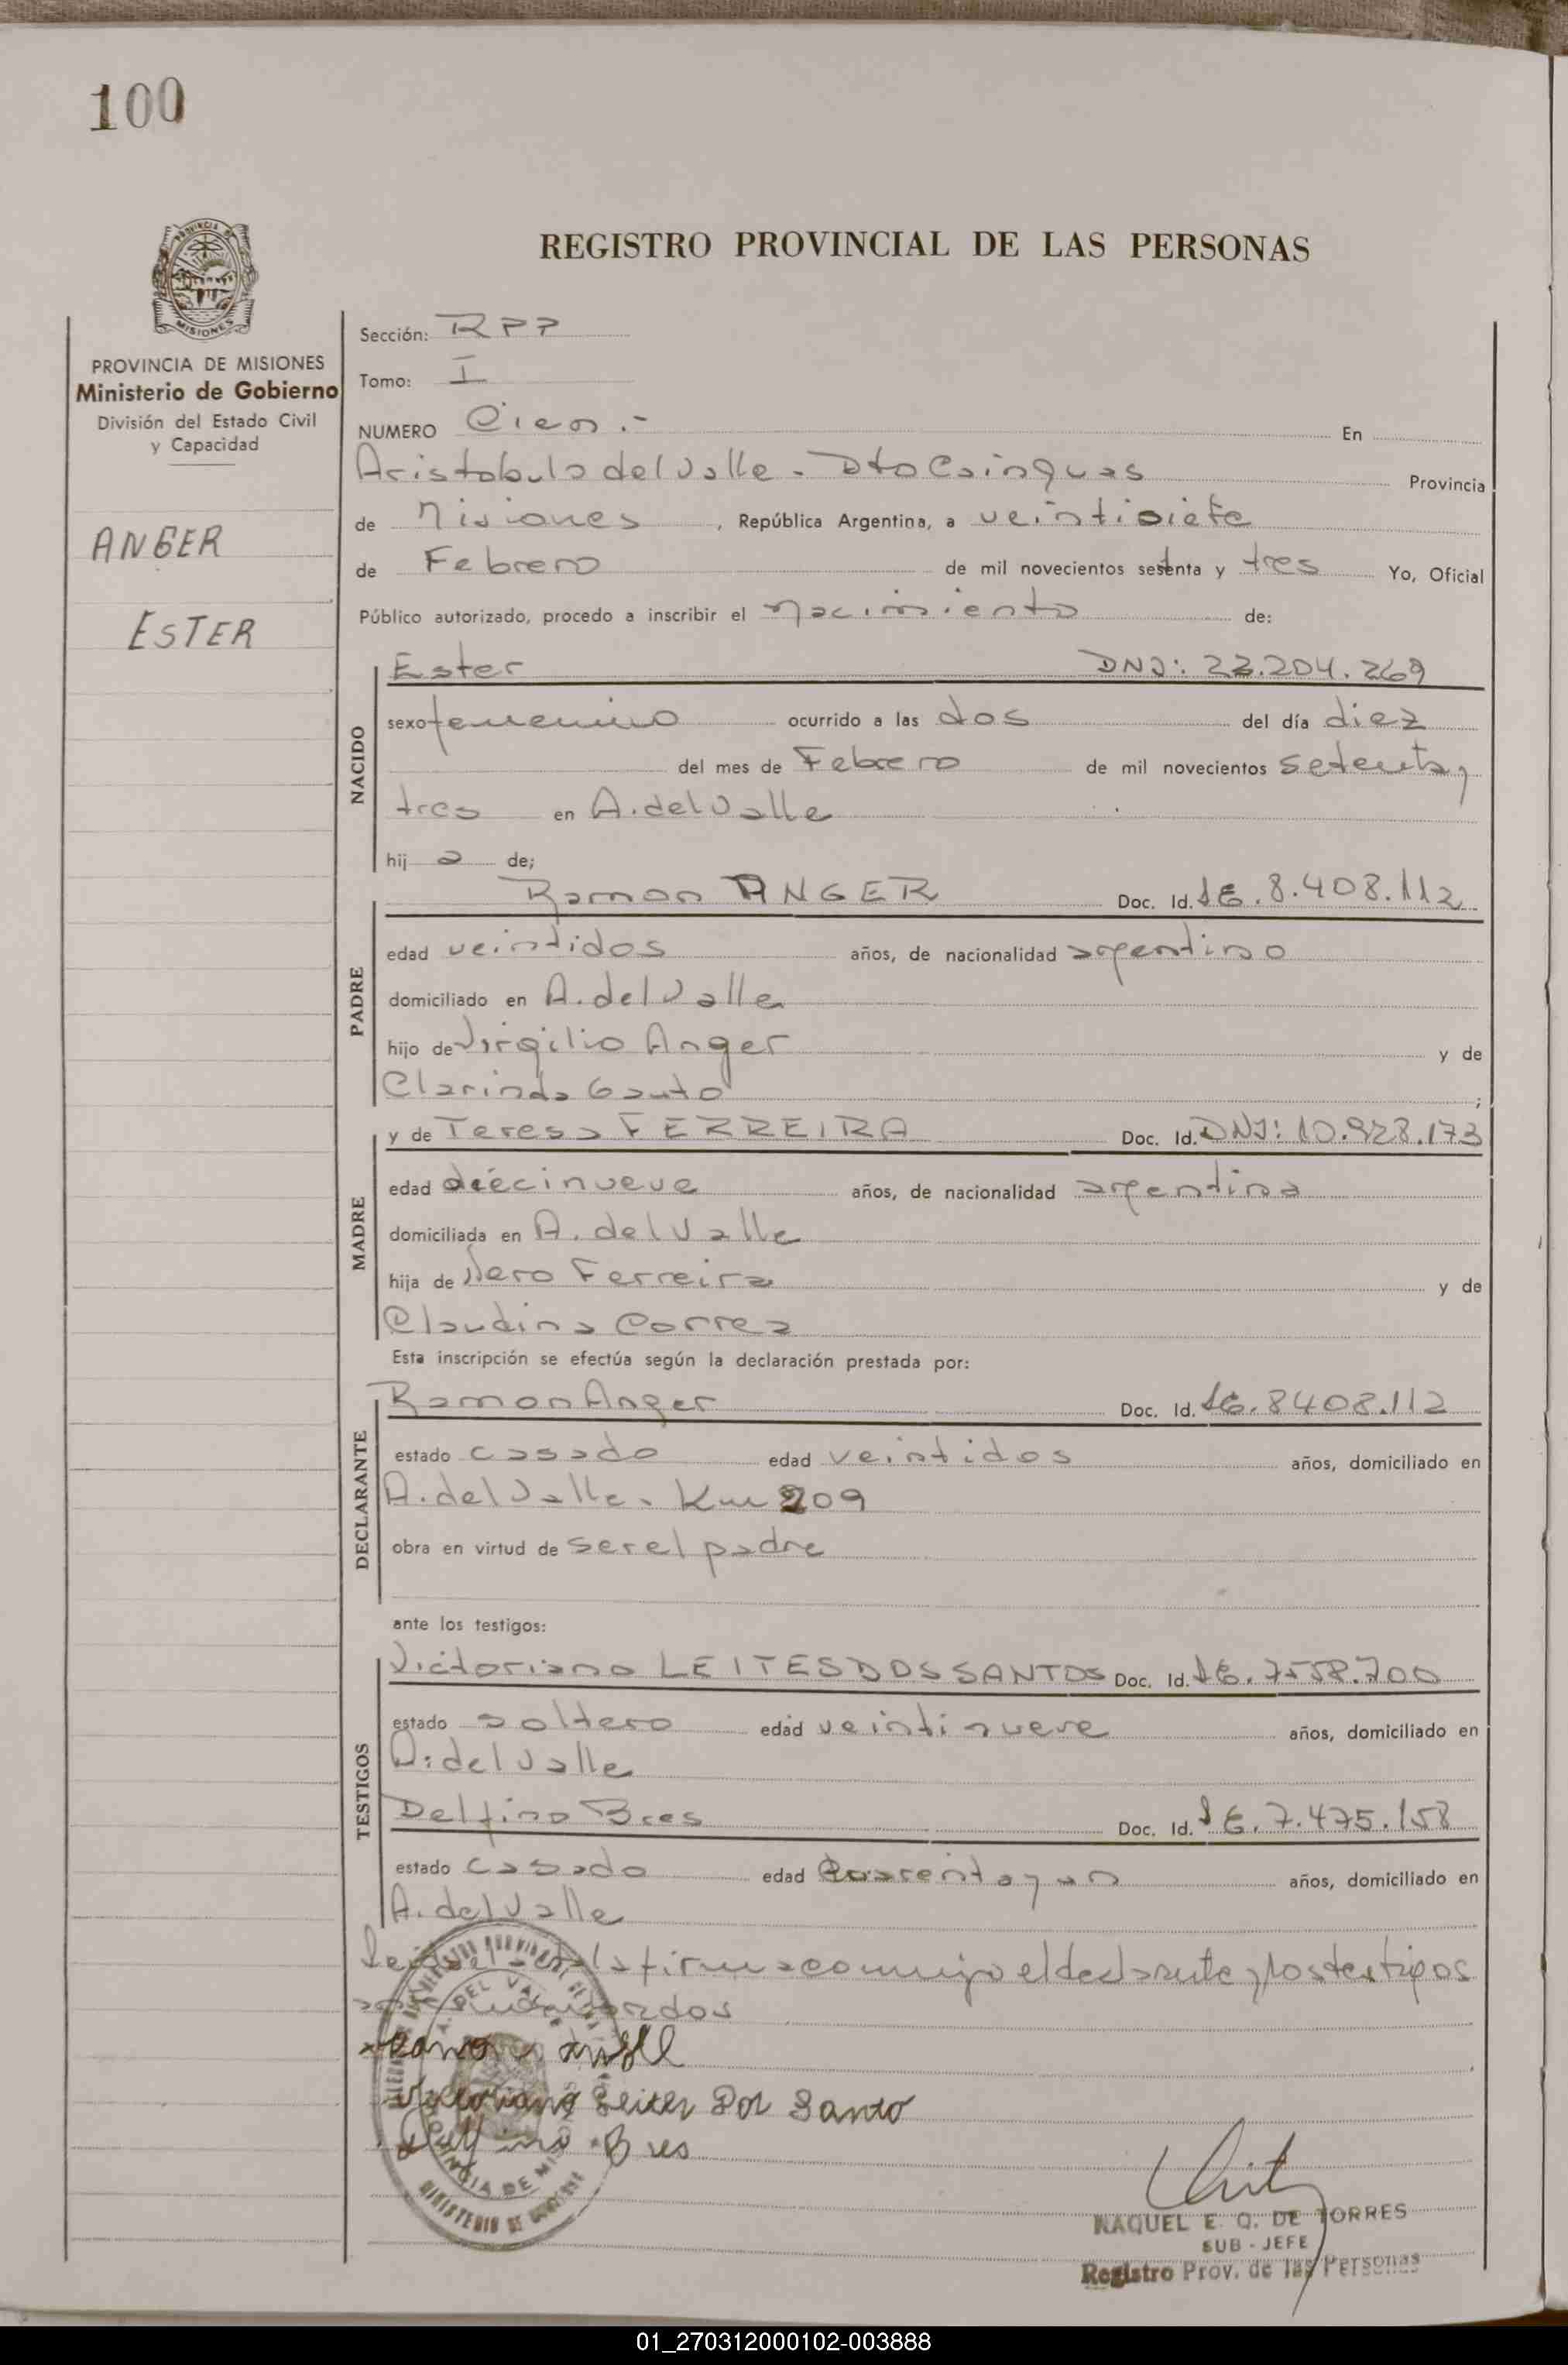 100
REGISTRO PROVINCIAL DE LAS PERSONAS
PROVINCIA DE MISIONES
Ministerio de Gobierno
División del Estado Civil
y Capacidad
ANGER
ESTER
Sección: RPP
Tomo: I
NUMERO Cien.- En
Aristobulo del Valle - Dto Cainguas Provincia
de Misiones, República Argentina, a veintisiete
de Febrero de mil novecientos setenta y tres Yo, Oficial
Público autorizado, procedo a inscribir el nacimiento de:
NACIDO
Ester DNI: 23.204.269
sexo femenino ocurrido a las dos del día diez
del mes de Febrero de mil novecientos setenta y
tres en A. del Valle
hij a de;
PADRE
Ramon ANGER Doc. Id. 8.408.112
edad veintidos años, de nacionalidad argentino
domiciliado en A. del Valle
hijo de Virgilio Anger y de
Clarinda Gauto ;
MADRE
y de Teresa FERREIRA Doc. Id. DNI: 10.928.173
edad diecinueve años, de nacionalidad argentina
domiciliada en A. del Valle
hija de Nero Ferreira y de
Claudina Correa
Esta inscripción se efectúa según la declaración prestada por:
DECLARANTE
Ramon Anger Doc. Id. 8408.112
estado casado edad veintidos años, domiciliado en
A. del Valle. Km 209
obra en virtud de ser el padre
ante los testigos:
TESTIGOS
Victoriano LEITES DOS SANTOS Doc. Id. 7.558.700
estado soltero edad veintinueve años, domiciliado en
A. del Valle
Delfino Bres Doc. Id. 7.475.158
estado casado edad cuarenta y un años, domiciliado en
A. del Valle
Leida el acta la firma conmigo el declarante y los testigos
Victoriano Leites Dos Santo
Delfino Bres
RAQUEL E. Q. DE TORRES
SUB - JEFE
Registro Prov. de las Personas
A. DEL VALLE
PROVINCIA DE MISIONES
MINISTERIO DE GOBIERNO
01_270312000102-003888